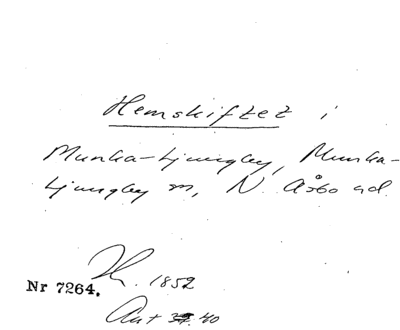 Hemskiftet i
Munka-Ljungby, Munka-
Ljungby sn, N. Åsbo hd.
Nr 7264. 1852
Ant 40